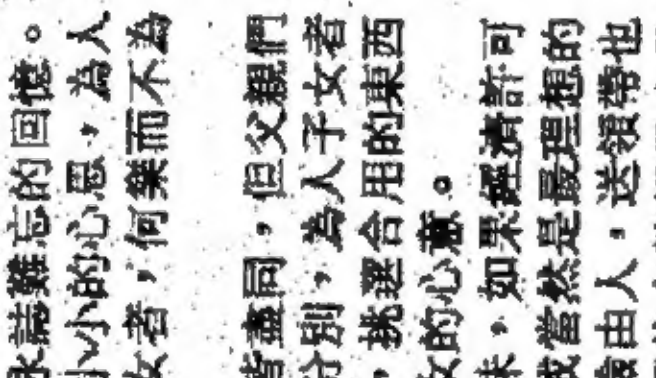 難忘的回憶。
小的心思，為人
者，何樂而不為
盡同，但父親們
別，為人子女者
，挑選合用的東西
的心意。
，如果經濟許可
當然是最理想的
由人，送領帶也